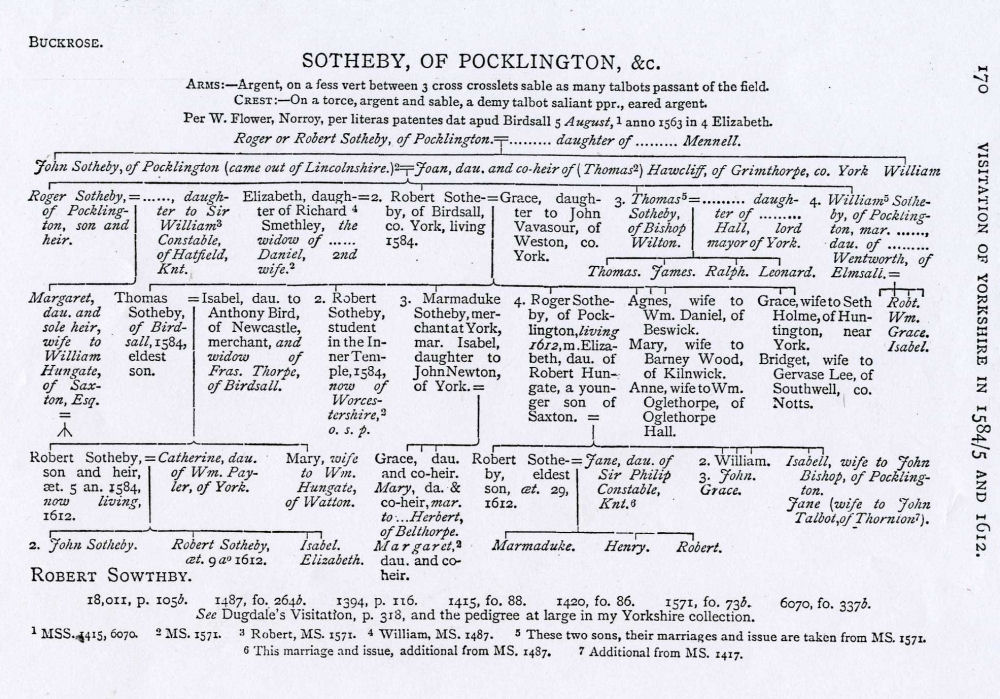 BUCKROSE.
SOTHEBY, OF POCKLINGTON, &c.
ARMS:—Argent, on a fess vert between 3 cross crosslets sable as many talbots passant of the field.
CREST:—On a torce, argent and sable, a demy talbot saliant ppr., eared argent.
Per W. Flower, Norroy, per literas patentes dat apud Birdsall 5 August,¹ anno 1563 in 4 Elizabeth.
Roger or Robert Sotheby, of Pocklington.= ......... daughter of ......... Mennell.
John Sotheby, of Pocklington (came out of Lincolnshire.)²=Joan, dau. and co-heir of (Thomas²) Hawcliff, of Grimthorpe, co. York
William
Roger Sotheby,=
of Pockling-
ton, son and
heir.
......, daugh-
ter to Sir
William³
Constable,
of Hatfield,
Knt.
Elizabeth, daugh-=
ter of Richard ⁴
Smethley, the
widow of ......
Daniel, 2nd
wife.²
2. Robert Sothe-=
by, of Birdsall,
co. York, living
1584.
Grace, daugh-
ter to John
Vavasour, of
Weston, co.
York.
3. Thomas⁵=
Sotheby,
of Bishop
Wilton.
......... daugh-
ter of .........
Hall, lord
mayor of York.
4. William⁵ Sothe-
by, of Pockling-
ton, mar. ......,
dau. of .........
Wentworth, of
Elmsall.=
Thomas. James. Ralph. Leonard.
Margaret,
dau. and
sole heir,
wife to
William
Hungate,
of Sax-
ton, Esq.
=
Thomas
Sotheby,
of Bird-
sall, 1584,
eldest
son.
=Isabel, dau. to
Anthony Bird,
of Newcastle,
merchant, and
widow of
Fras. Thorpe,
of Birdsall.
2. Robert
Sotheby,
student
in the In-
ner Tem-
ple, 1584,
now of
Worces-
tershire,²
o. s. p.
3. Marmaduke
Sotheby, mer-
chant at York,
mar. Isabel,
daughter to
John Newton,
of York.=
4. Roger Sothe-
by, of Pock-
lington, living
1612, m. Eliza-
beth, dau. of
Robert Hun-
gate, a youn-
ger son of
Saxton. =
Agnes, wife to
Wm. Daniel, of
Beswick.
Mary, wife to
Barney Wood,
of Kilnwick.
Anne, wife to Wm.
Oglethorpe, of
Oglethorpe
Hall.
Grace, wife to Seth
Holme, of Hun-
tington, near
York.
Bridget, wife to
Gervase Lee, of
Southwell, co.
Notts.
Robt.
Wm.
Grace.
Isabel.
Robert Sotheby,=
son and heir,
æt. 5 an. 1584,
now living,
1612.
Catherine, dau.
of Wm. Pay-
ler, of York.
Mary, wife
to Wm.
Hungate,
of Watton.
Grace, dau.
and co-heir.
Mary, da. &
co-heir, mar.
to ... Herbert,
of Belthorpe.
Margaret,²
dau. and co-
heir.
Robert Sothe-=
by, eldest
son, æt. 29,
1612.
Jane, dau. of
Sir Philip
Constable,
Knt.⁶
2. William.
3. John.
Grace.
Isabell, wife to John
Bishop, of Pockling-
ton.
Jane (wife to John
Talbot, of Thornton⁷).
2. John Sotheby.
Robert Sotheby,
æt. 9 aº 1612.
Isabel.
Elizabeth.
Marmaduke. Henry. Robert.
ROBERT SOWTHBY.
18,011, p. 105b. 1487, fo. 264b. 1394, p. 116. 1415, fo. 88. 1420, fo. 86. 1571, fo. 73b. 6070, fo. 337b.
See Dugdale's Visitation, p. 318, and the pedigree at large in my Yorkshire collection.
¹ MSS. 1415, 6070. ² MS. 1571. ³ Robert, MS. 1571. ⁴ William, MS. 1487. ⁵ These two sons, their marriages and issue are taken from MS. 1571.
⁶ This marriage and issue, additional from MS. 1487. ⁷ Additional from MS. 1417.
170 VISITATION OF YORKSHIRE IN 1584/5 AND 1612.